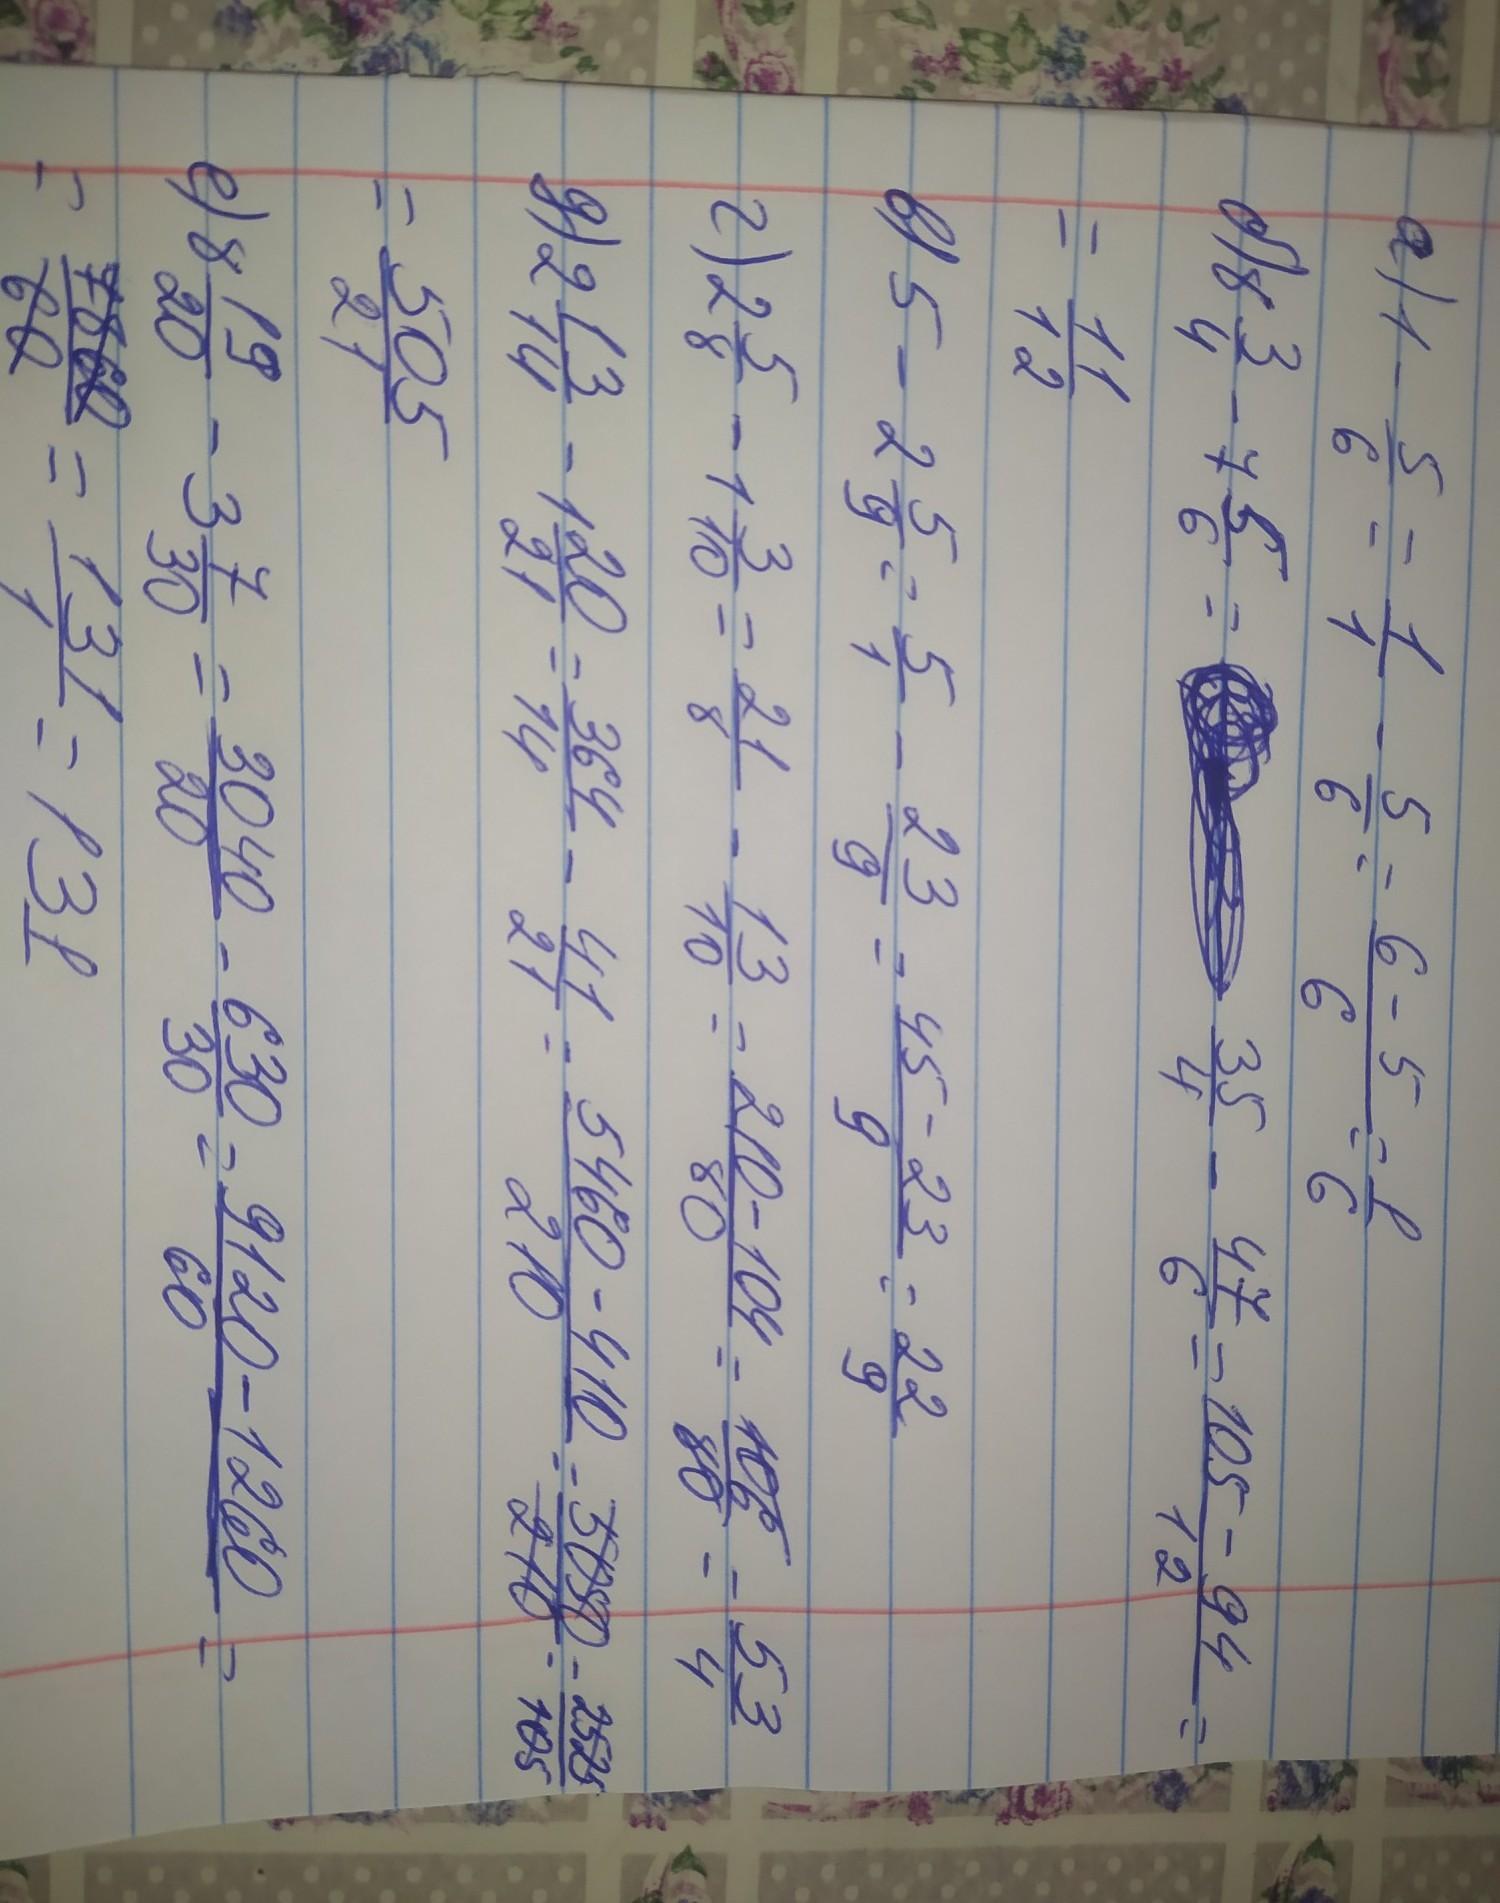 а) 1 - 5/6 = 1/1 - 5/6 = 6-5/6 = 1/6
б) 8 3/4 - 7 5/6 = 35/4 - 47/6 = 105-94/12 =
= 11/12
в) 5 - 2 5/9 = 5/1 - 23/9 = 45-23/9 = 22/9
г) 2 5/8 - 1 3/10 = 21/8 - 13/10 = 210-104/80 = 106/80 = 53/4
д) 2 13/14 - 1 20/21 = 364/14 - 41/21 = 5460-410/210 = 5050/210 = 2525/105
= 505/21
е) 8 19/20 - 3 7/30 = 3040/20 - 630/30 = 9120-1260/60 =
= 7860/60 = 131/1 = 131